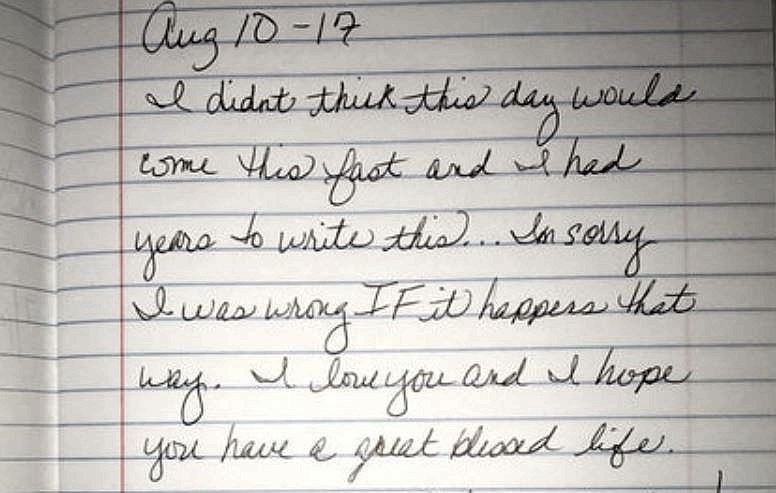 Aug 10-17
I didnt think this day would
come this fast and I had
years to write this... Im sorry
I was wrong IF it happens that
way. I love you and I hope
you have a great blessed life.